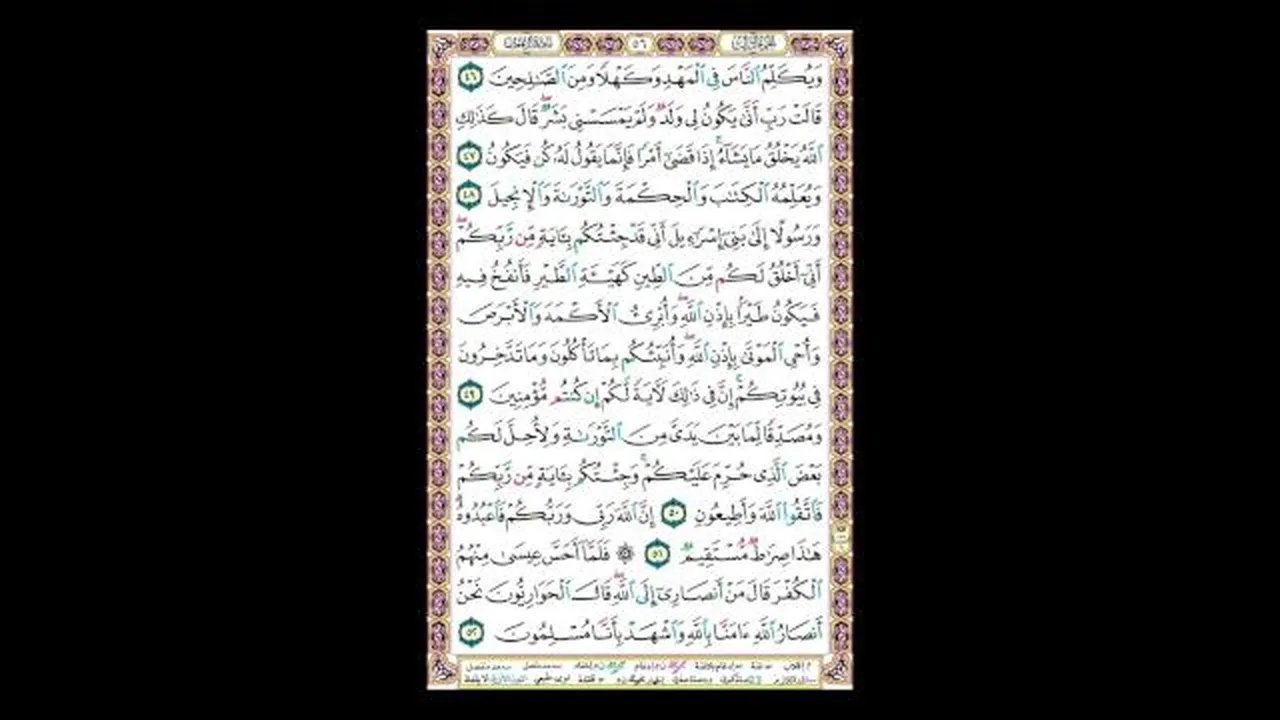 ٥٦
وَيُكَلِّمُ ٱلنَّاسَ فِي ٱلْمَهْدِ وَكَهْلًا وَمِنَ ٱلصَّـٰلِحِينَ ٤٦
قَالَتْ رَبِّ أَنَّىٰ يَكُونُ لِى وَلَدٌ وَلَمْ يَمْسَسْنِى بَشَرٌ ۖ قَالَ كَذَٰلِكِ
ٱللَّهُ يَخْلُقُ مَا يَشَآءُ ۚ إِذَا قَضَىٰٓ أَمْرًا فَإِنَّمَا يَقُولُ لَهُۥ كُن فَيَكُونُ ٤٧
وَيُعَلِّمُهُ ٱلْكِتَـٰبَ وَٱلْحِكْمَةَ وَٱلتَّوْرَىٰةَ وَٱلْإِنجِيلَ ٤٨
وَرَسُولًا إِلَىٰ بَنِىٓ إِسْرَٰٓءِيلَ أَنِّى قَدْ جِئْتُكُم بِـَٔايَةٍ مِّن رَّبِّكُمْ ۖ
أَنِّىٓ أَخْلُقُ لَكُم مِّنَ ٱلطِّينِ كَهَيْـَٔةِ ٱلطَّيْرِ فَأَنفُخُ فِيهِ
فَيَكُونُ طَيْرًۢا بِإِذْنِ ٱللَّهِ ۖ وَأُبْرِئُ ٱلْأَكْمَهَ وَٱلْأَبْرَصَ
وَأُحْىِ ٱلْمَوْتَىٰ بِإِذْنِ ٱللَّهِ ۖ وَأُنَبِّئُكُم بِمَا تَأْكُلُونَ وَمَا تَدَّخِرُونَ
فِى بُيُوتِكُمْ ۚ إِنَّ فِى ذَٰلِكَ لَـَٔايَةً لَّكُمْ إِن كُنتُم مُّؤْمِنِينَ ٤٩
وَمُصَدِّقًا لِّمَا بَيْنَ يَدَىَّ مِنَ ٱلتَّوْرَىٰةِ وَلِأُحِلَّ لَكُم
بَعْضَ ٱلَّذِى حُرِّمَ عَلَيْكُمْ ۚ وَجِئْتُكُم بِـَٔايَةٍ مِّن رَّبِّكُمْ
فَٱتَّقُوا۟ ٱللَّهَ وَأَطِيعُونِ ٥٠ إِنَّ ٱللَّهَ رَبِّى وَرَبُّكُمْ فَٱعْبُدُوهُ ۗ
هَـٰذَا صِرَٰطٌ مُّسْتَقِيمٌ ٥١ ۞ فَلَمَّآ أَحَسَّ عِيسَىٰ مِنْهُمُ
ٱلْكُفْرَ قَالَ مَنْ أَنصَارِىٓ إِلَى ٱللَّهِ ۖ قَالَ ٱلْحَوَارِيُّونَ نَحْنُ
أَنصَارُ ٱللَّهِ ءَامَنَّا بِٱللَّهِ وَٱشْهَدْ بِأَنَّا مُسْلِمُونَ ٥٢